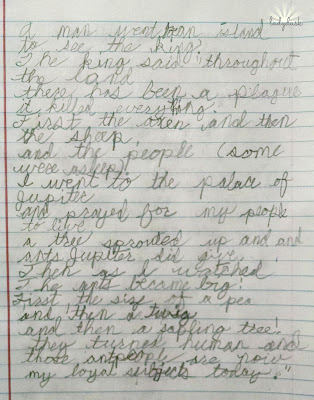 ladydusk
A man went to an island
to see the king.
The king said "throughout
the land
there has been a plague
it killed everything!
First the oxen and then
the sheep,
and the people (some
were asleep)!
I went to the palace of
Jupiter
and prayed for my people
to live
a tree sprouted up and and
ants Jupiter did give.
Then as I watched
The ants became big!
First the size of a pea
and then a twig
and then a sapling tree!
they turned human and
those antpeople are now
my loyal subjects today."